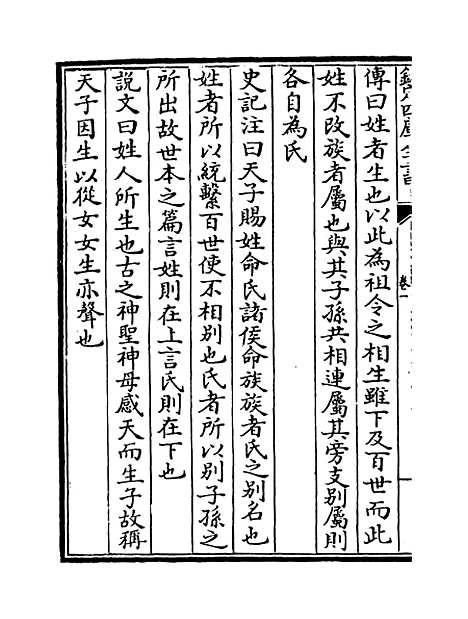 欽定四庫全書
卷一
傳曰姓者生也以此為祖令之相生雖下及百世而此
姓不改族者屬也與其子孫共相連屬其旁支别屬則
各自為氏
史記注曰天子賜姓命氏諸侯命族族者氏之别名也
姓者所以統繫百世使不相别也氏者所以别子孫之
所出故世本之篇言姓則在上言氏則在下也
説文曰姓人所生也古之神聖神母感天而生子故稱
天子因生以從女女生亦聲也